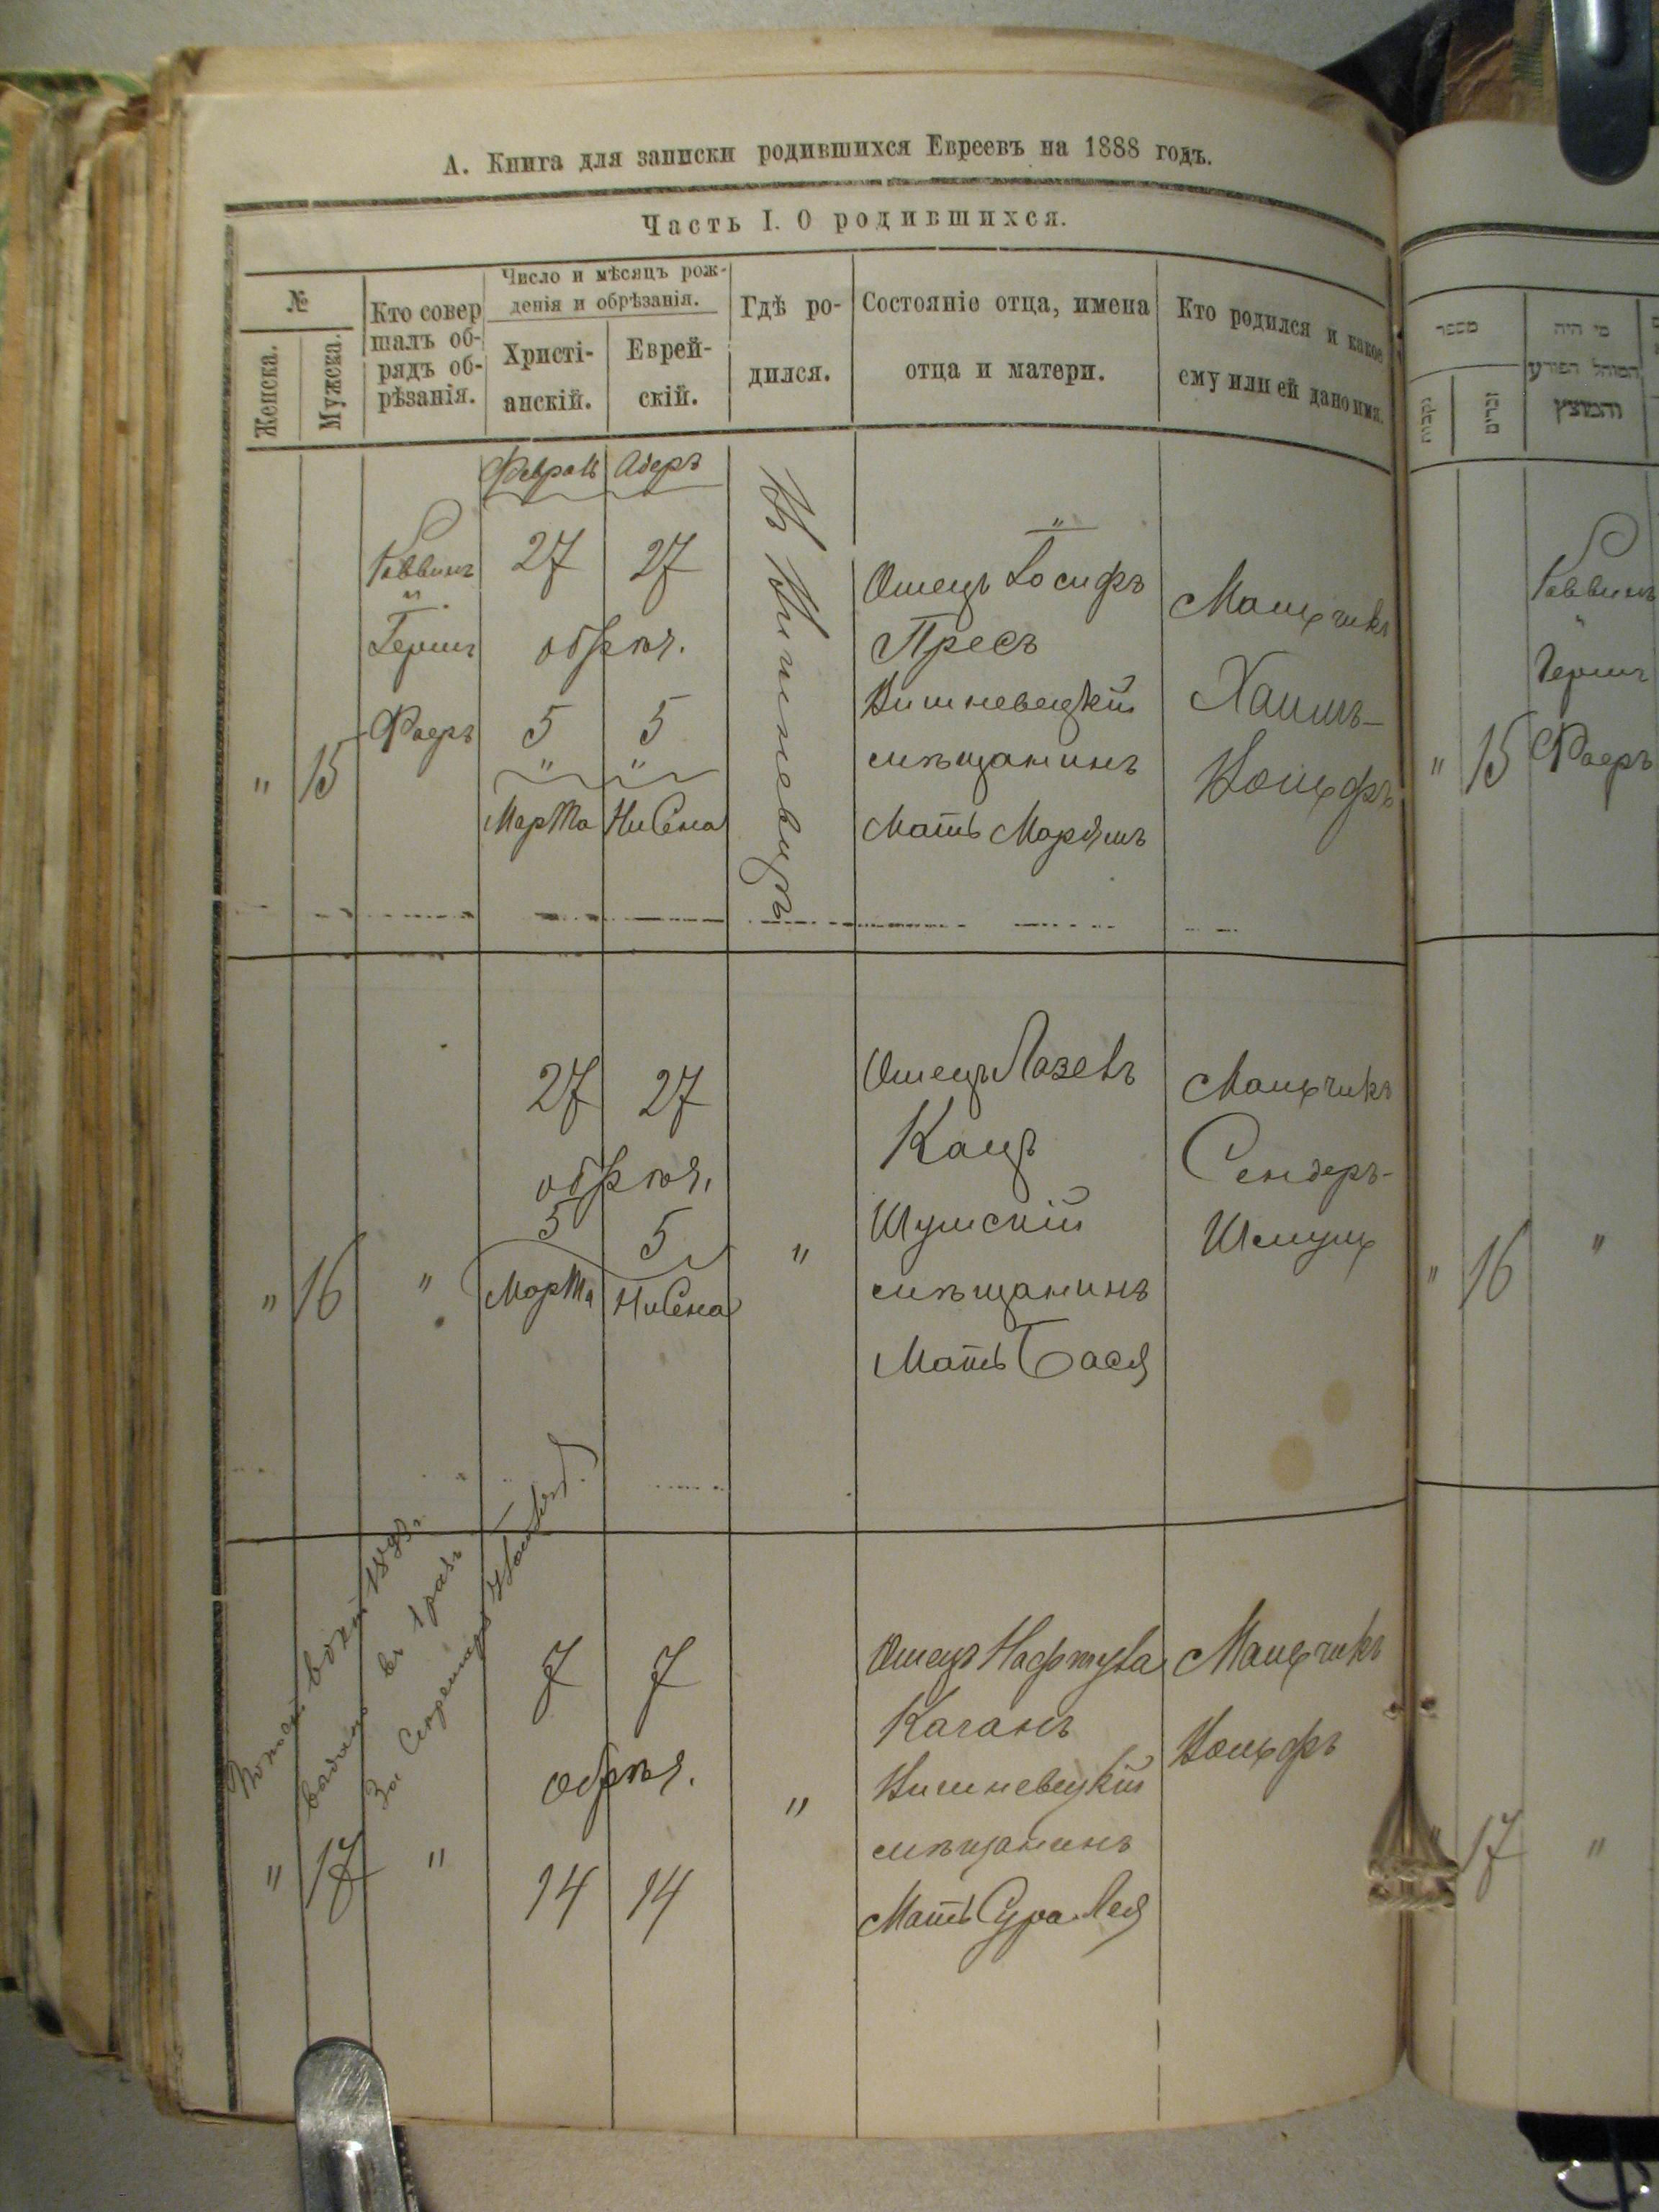 А. Книга для записки родившихся Евреевъ на 1888 годъ.
Часть I. О родившихся.
№
Женска.
Мужска.
Кто совер
шалъ об-
рядъ об-
рѣзанія.
Число и мѣсяцъ рож-
денія и обрѣзанія.
Христі-
анскій.
Еврей-
скій.
Гдѣ ро-
дился.
Состояніе отца, имена
отца и матери.
Кто родился и какое
ему или ей дано имя.
" 15
Раввинъ
"
Гершъ
Фаеръ
Февраль Адеръ
27 27
обрѣз.
5 5
" "
Марта Нисена
Въ Вишневцѣ
"
Отецъ Іосифъ
Пресъ
Вишневецкій
мѣщанинъ
Мать Маріямъ
Мальчикъ
Хаимъ-
Вольфъ
" 16 "
27 27
обрѣз.
5 5
Марта Нисена
"
Отецъ Лазевъ
Кацъ
Шумскій
мѣщанинъ
Мать Бася
Мальчикъ
Сендеръ-
Шмуль
въ 1 разъ
За Секретаря
" 17 "
7 7
обрѣз.
14 14
"
Отецъ Нафтула
Каганъ
Вишневецкій
мѣщанинъ
Мать Сура Лея
Мальчикъ
Вольфъ
מספר
נקבות
זכרים
מי היה
המוהל הפורע
והמוצץ
" 15
Раввинъ
"
Гершъ
Фаеръ
" 16 "
17 "